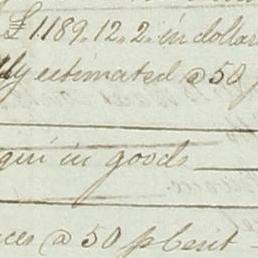 £1189.12.2. in dollar
lly estimated @ 50
gui in goods
ces @ 50 p Cent